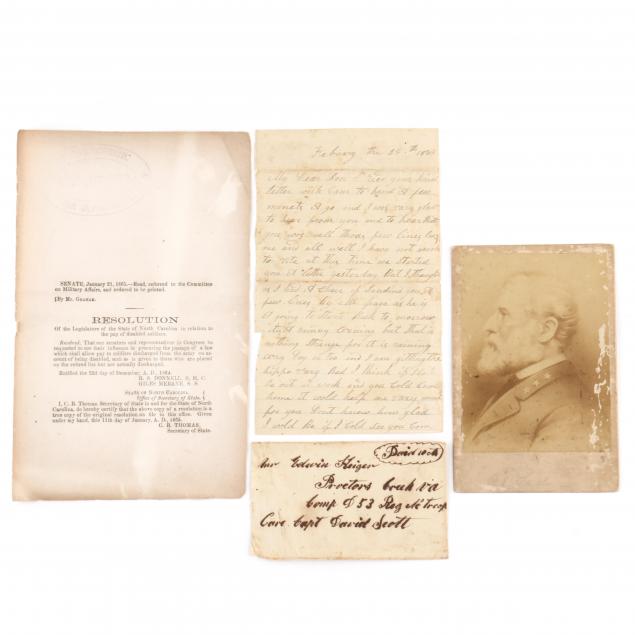 SENATE, January 21, 1865.—Read, referred to the Committee
on Military Affairs, and ordered to be printed.
[By Mr. GRAHAM.
RESOLUTION
Of the Legislature of the State of North Carolina in relation to
the pay of disabled soldiers.
Resolved, That our senators and representatives in Congress be
requested to use their influence in procuring the passage of a law
which shall allow pay to soldiers discharged from the army on ac-
count of being disabled, such as is given to those who are placed
on the retired list but are not actually discharged.
Ratified the 23d day of December, A. D., 1864.
R. S. DONNELL, S. H. C.
GILES MEBANE, S. S.
STATE OF NORTH CAROLINA,
Office of Secretary of State.
I, C. R. Thomas, Secretary of State in and for the State of North
Carolina, do hereby certify that the above copy of a resolution is a
true copy of the original resolution on file in this office. Given
under my hand, this 11th day of January, A. D., 1865.
C. R. THOMAS,
Secretary of State.
Febuary the 24th
My Dear Son I your kind
letter with Came to hand A few
go and I was very glad
to hear from you and to hear that
you was well these few lines
me and all well I have not much
to rite at this time we started
you A letter yesterday But I thought
as I had A Chance of Sending you A
few lines By as he is
A going to Start Back to morrow
it is A rainy morning But that is
nothing strange for it is raining
evry Day or two and I am getting the
But I think if
and you Could Come
home it would help me very much
for you Dont know how glad
I would Be if I Could See you Come
Paid 10 cts
Mr Edwin
Proctors Creek va
Comp D 53 Reg NC troop
Care Capt David Scott